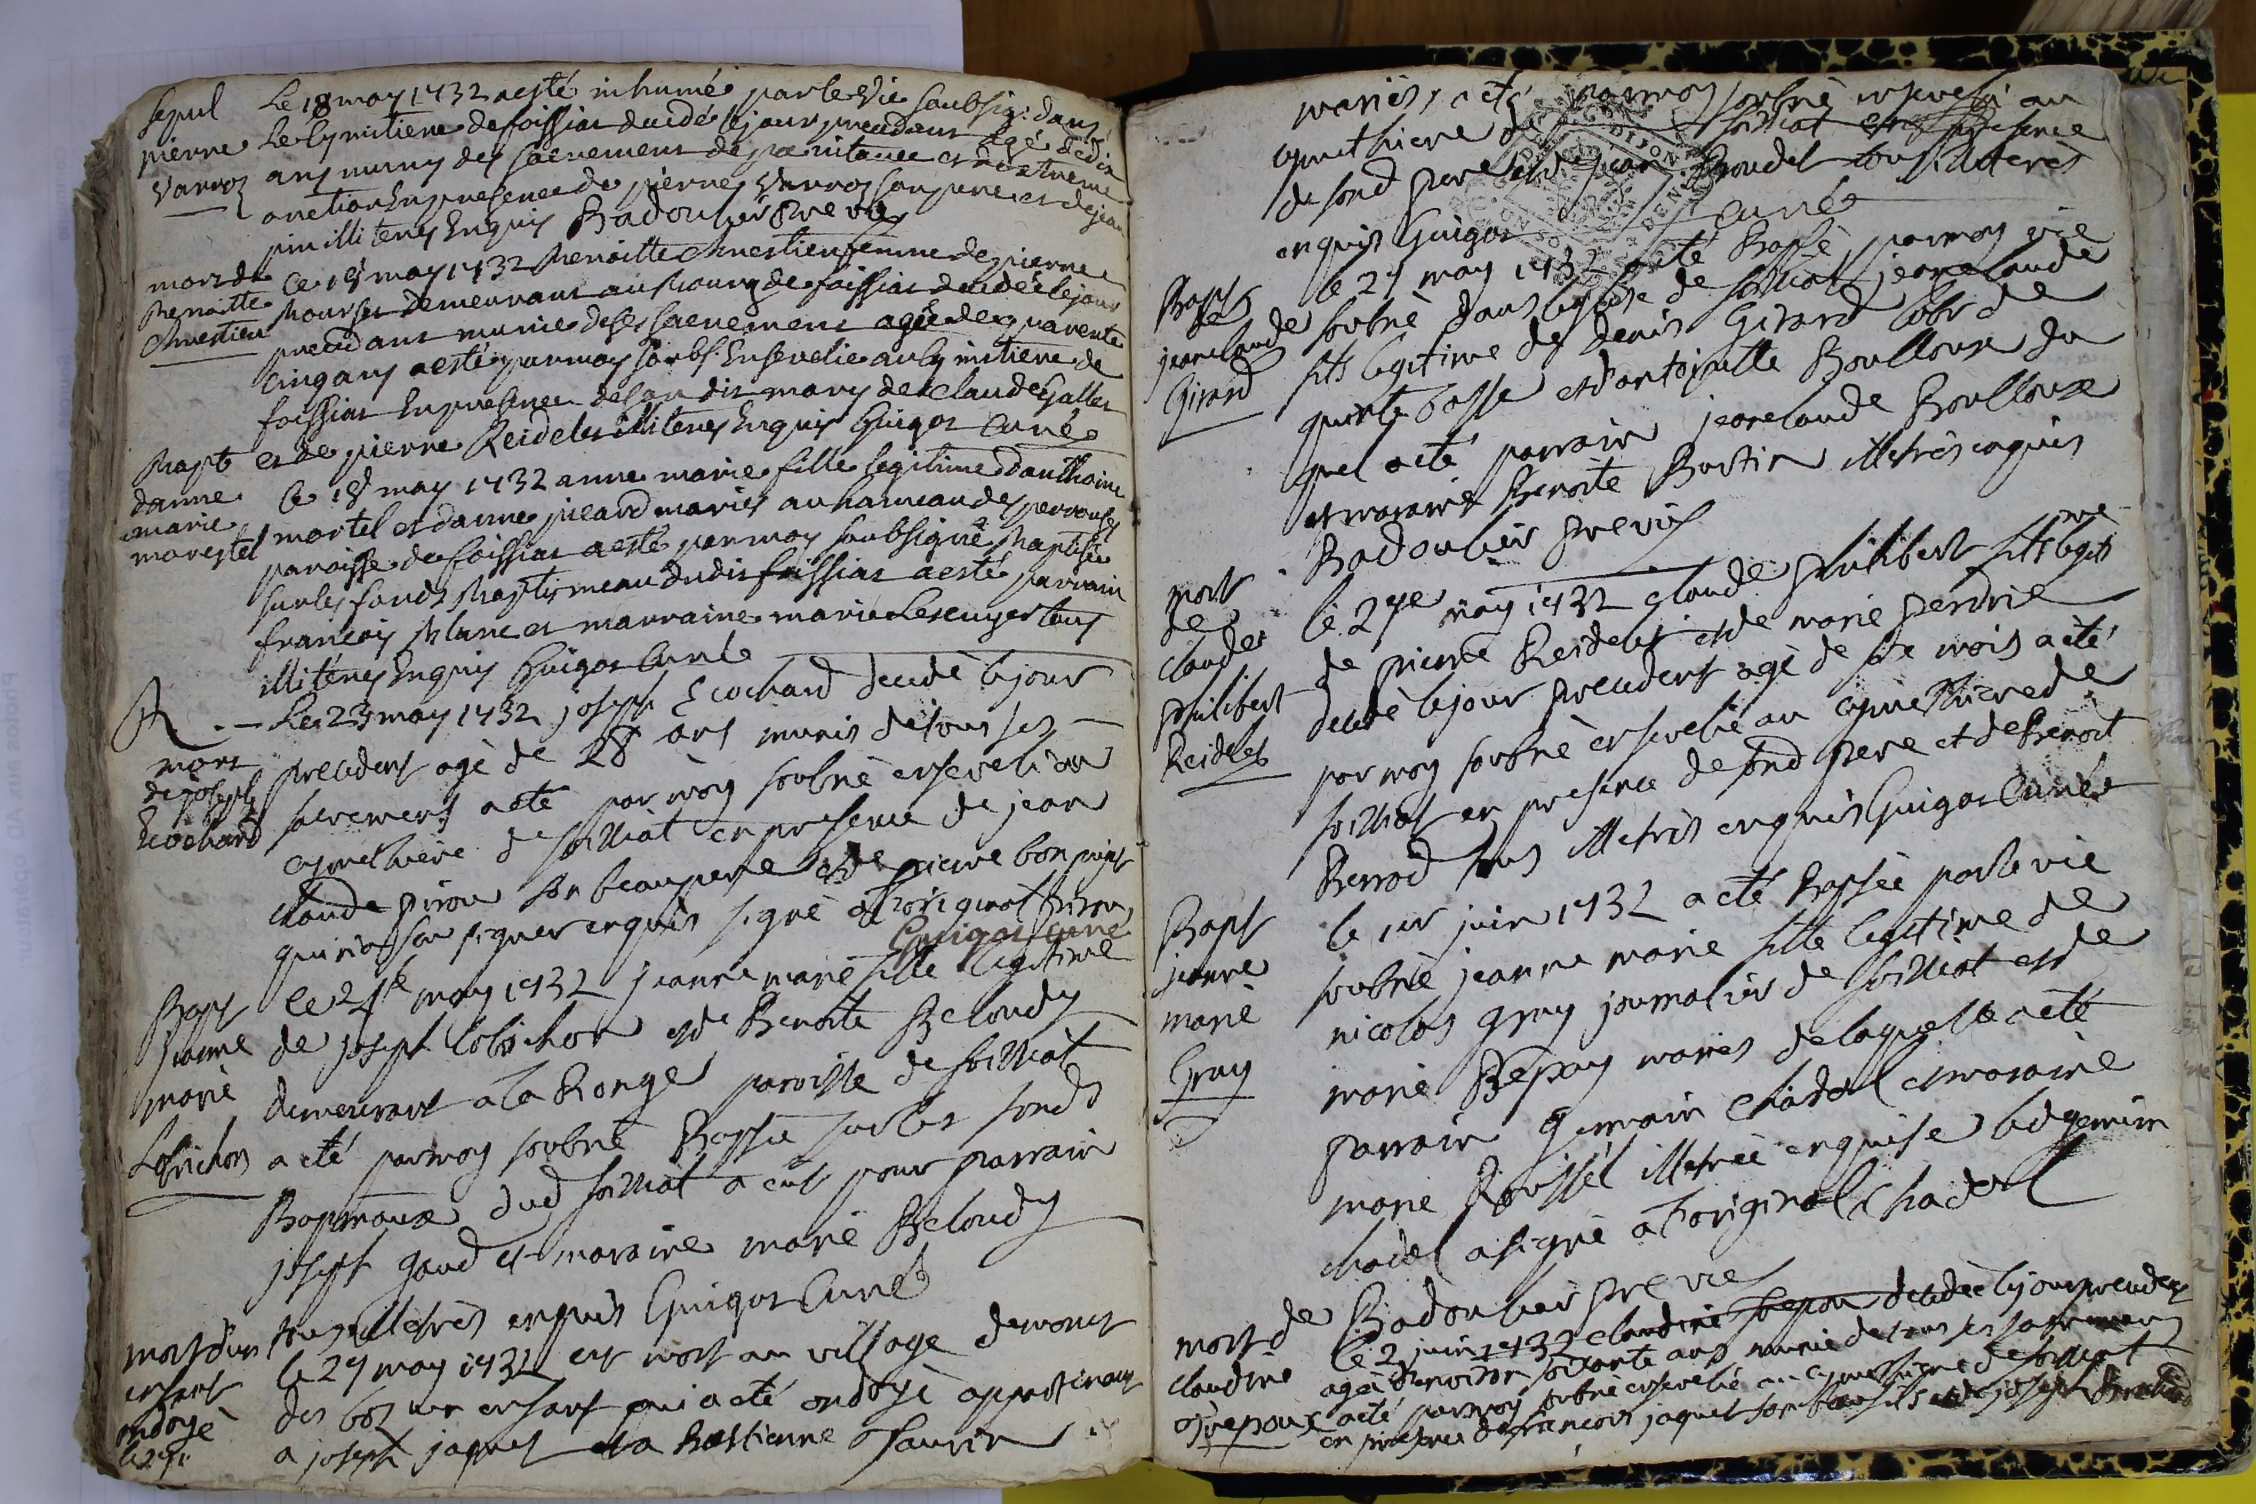 sepul
pierre
Varroz
Le 18 may 1732 a esté inhumé par le Vic soubsig: dans
le Cymitiere de foissiat decidé le jour precedant agé de dix
ans muny des sacremens de paenitance et d'extreme
onction En presence de pierre Varroz son pere et de jean
pin illiteres Enquis Badoulier p^re vic
mort de
Benoitte
Chrestien
Ce 18 may 1732 Benoitte Chrestien femme de pierre
Mourset demeurant au bourg de foissiat decidée le jour
precedant munie de ses sacremens agée de quarente
cinq ans a esté par moy soubs. Ensevelie au Cymitiere de
foissiat En presence de son dit mary de Claude Gallet
et de pierre Reidelet illiteres Enquis Guigot Curé
Bapt
d'anne
marie
morestel
Ce 18 may 1732 anne marie fille legitime d'anthoine
mortel et d'anne picard mariés au hameau des perrouses
paroisse de foissiat a esté par moy soubsigné Baptisée
sur les fonds Baptismeau dudit foissiat a esté parrain
francois blanc et marraine marie Lescuyer tous
illiteres Enquis Guigot Curé
mort
de joseph
Ecochard
Le 23 may 1732 joseph Ecochard decedé le jour
precedent agé de 28 ans munis de tous ses
sacremens a eté par moy soubné enseveli au
cymethiere de foissiat en presence de jean
claude piron son beaupere et de pierre bonpuis
qui n'a sçu signer enquis signé a l'original piron
Guigot curé
Bapt
jeanne
marie
Lobrichon
Le 24e may 1732 jeanne marie fille legitime
de joseph lobrichon et de Benoite Beloudy
demeurant a la Ronge paroisse de foissiat
a eté par moy soubné Baptsée sur les fonds
Bapmaux dud foissiat a eut pour parrain
joseph gaud et maraine marie Beloudy
tous illetrés enquis Guigot Curé
mort d'un
enfant
ondoyé
le 27.
le 27 may 1732 est mort au village de
des boz un enfant qui a eté ondoyé appartenant
a joseph jaquet et a Bastienne
mariés, a eté par moy soubné enseveli au
cymethiere de foissiat en presence
de sond pere et de jean Brondel tous illiterés
enquis Guigot Curé
Bapt
de
jeanclaude
Girard
le 27 may 1732 a eté Bapsé par moy vic
soubné dans l'eglise de foissiat jeanclaude
fils legitime de denis Girard labr de
quinte basse et d'antoinette Boulloux du
quel a eté parrain jeanclaude Boulloux
et maraine Benoite Bartin illetrés enquis
Badoulier p^re vic
mort
de
claude
philibert
Reidelet
le 29e may 1732 claude philibert fils legit^me
de pierre Reidelet et de marie perdrie
decedé le jour precedent agé de mois a eté
par moy soubné enseveli au cymethiere de
foissiat en presence de sond pere et de Benoit
Berrod tous illetrés enquis Guigot Curé
Bapt
jeanne
marie
Gray
le 1er juin 1732 a eté Bapsée par le vic
soubné jeanne marie fille legitime de
nicolas gray journalier de foissiat et de
marie Bepay mariés de laquelle a eté
parrain germain chadel et maraine
marie Roussel illetrée enquise led germain
chadel a signé a l'original chadel
Badoulier p^re vic
mort de
claudine
trepoux
le 2 juin 1732 claudine decedée le jour precedent
agée d'environ soixante ans munie de tous ses sacremens
a eté par moy soubné ensevelie au cymethiere de foissiat
en presence de francois jaquet son beaufils et de joseph